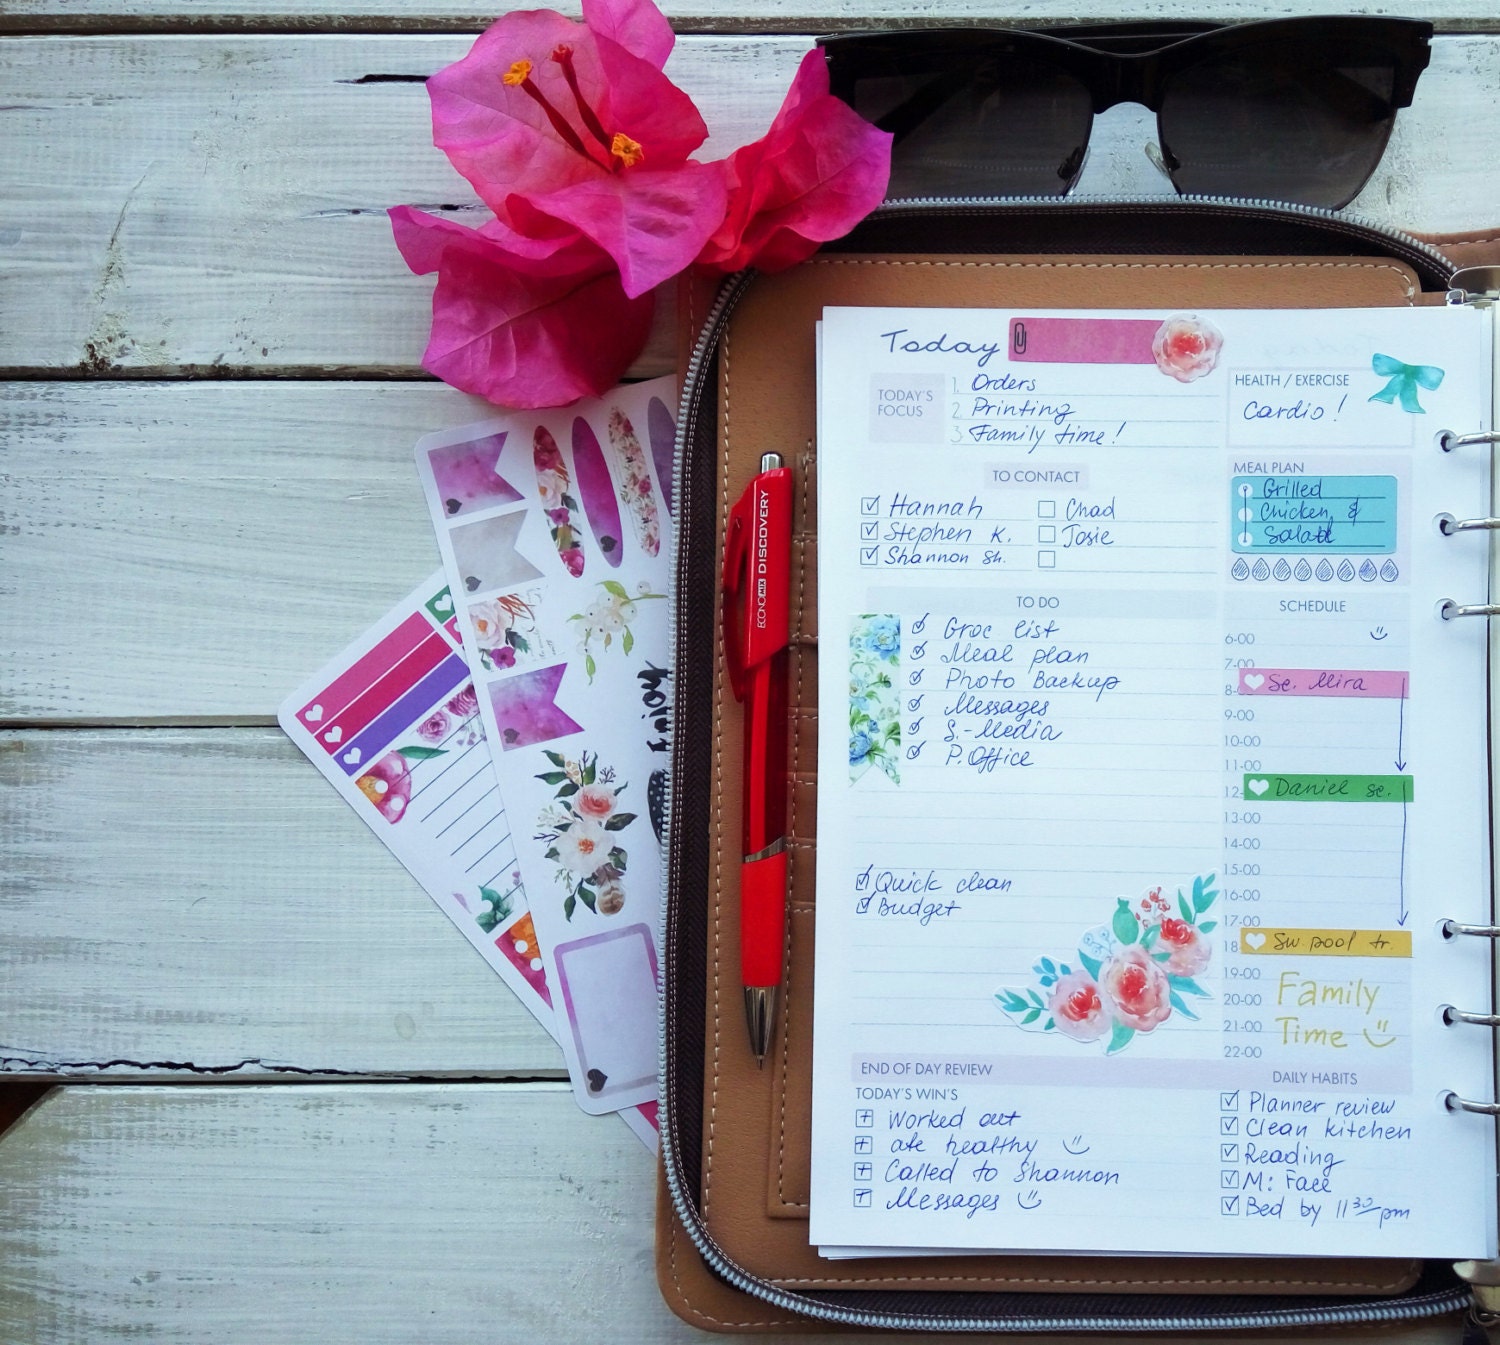 Enjoy
ECONOMIX DISCOVERY
Today
TODAY'S FOCUS
1. Orders
2. Printing
3. Family time!
HEALTH / EXERCISE
Cardio!
TO CONTACT
Hannah
Stephen K.
Shannon Sh.
Chad
Josie
MEAL PLAN
Grilled
Chicken &
Salad
TO DO
Groc list
Meal plan
Photo Backup
Messages
S.-Media
P. Office
Quick clean
Budget
SCHEDULE
6-00
7-00
8-
Sc. Mira
9-00
10-00
11-00
12-
Daniel sc.
13-00
14-00
15-00
16-00
17-00
18
Sw pool tr.
19-00
20-00
21-00
22-00
Family
Time
END OF DAY REVIEW
TODAY'S WIN'S
Worked out
ate healthy
Called to Shannon
Messages
DAILY HABITS
Planner review
Clean kitchen
Reading
M: Face
Bed by 11 30 pm